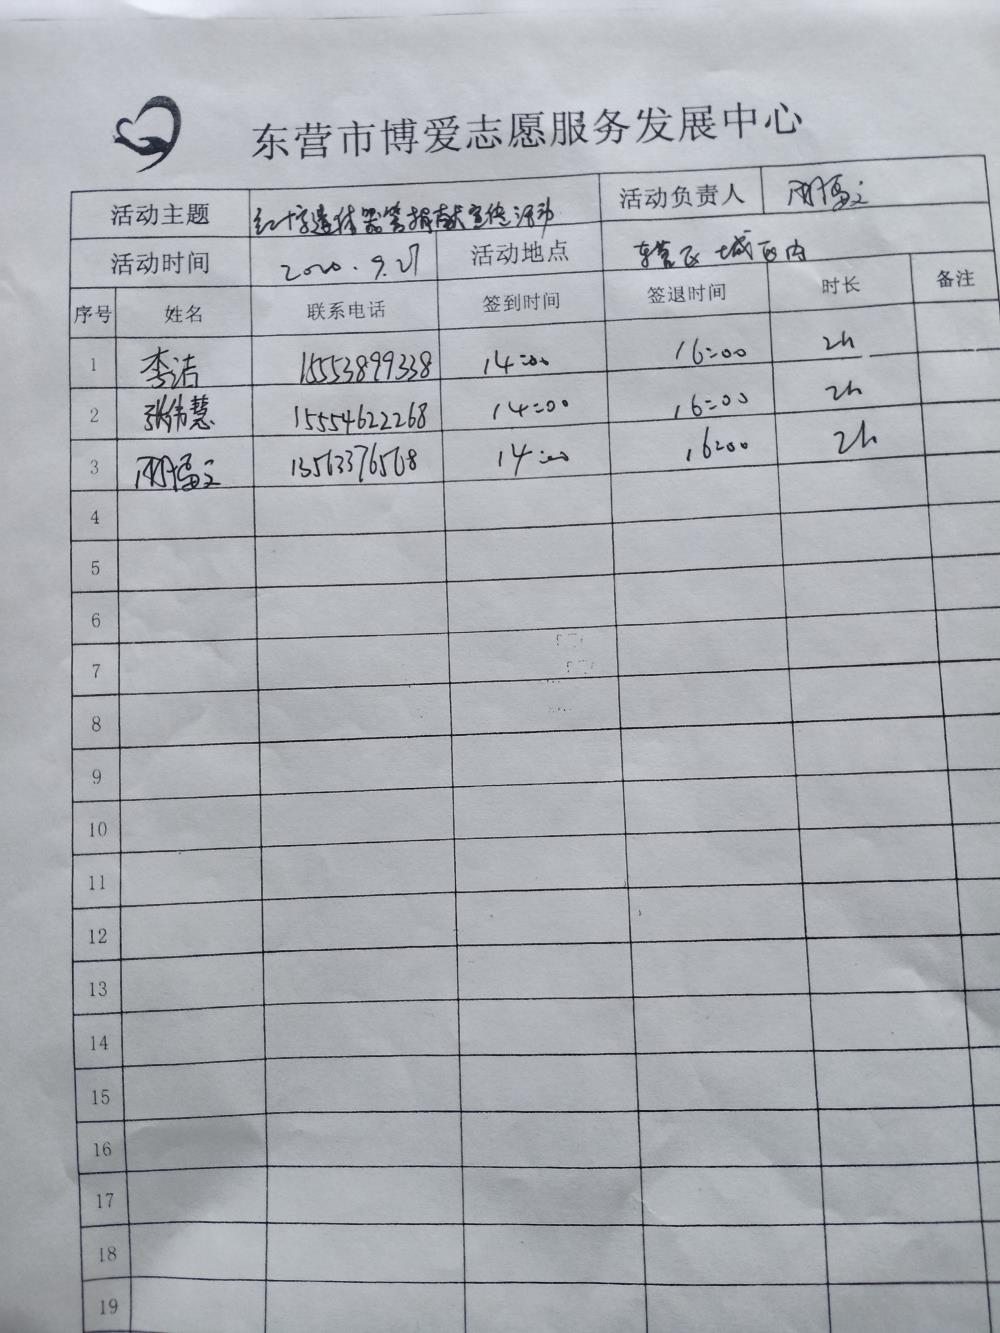 东营市博爱志愿服务发展中心
活动主题 红十字遗体器官捐献宣传活动 活动负责人
活动时间 2020.9.27 活动地点 东营区城区内
序号 姓名 联系电话 签到时间 签退时间 时长 备注
1 李洁 15553899338 14:00 16:00 2h
2 张伟慧 15554622268 14:00 16:00 2h
3 13563376568 14:00 16:00 2h
4
5
6
7
8
9
10
11
12
13
14
15
16
17
18
19